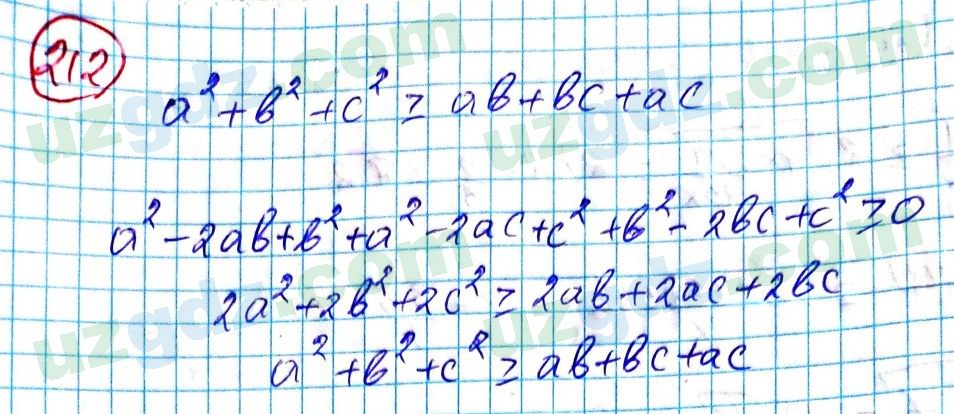 212
a² + в² + c² ≥ aв + вc + ac
a² - 2aв + в² + a² - 2ac + c² + в² - 2вc + c² ≥ 0
2a² + 2в² + 2c² ≥ 2aв + 2ac + 2вc
a² + в² + c² ≥ aв + вc + ac
uzgdz.com
uzgdz.com
uzgdz.com
uzgdz.com